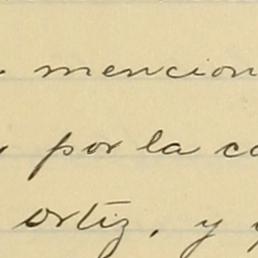 mencion
por la co
Ortiz, y